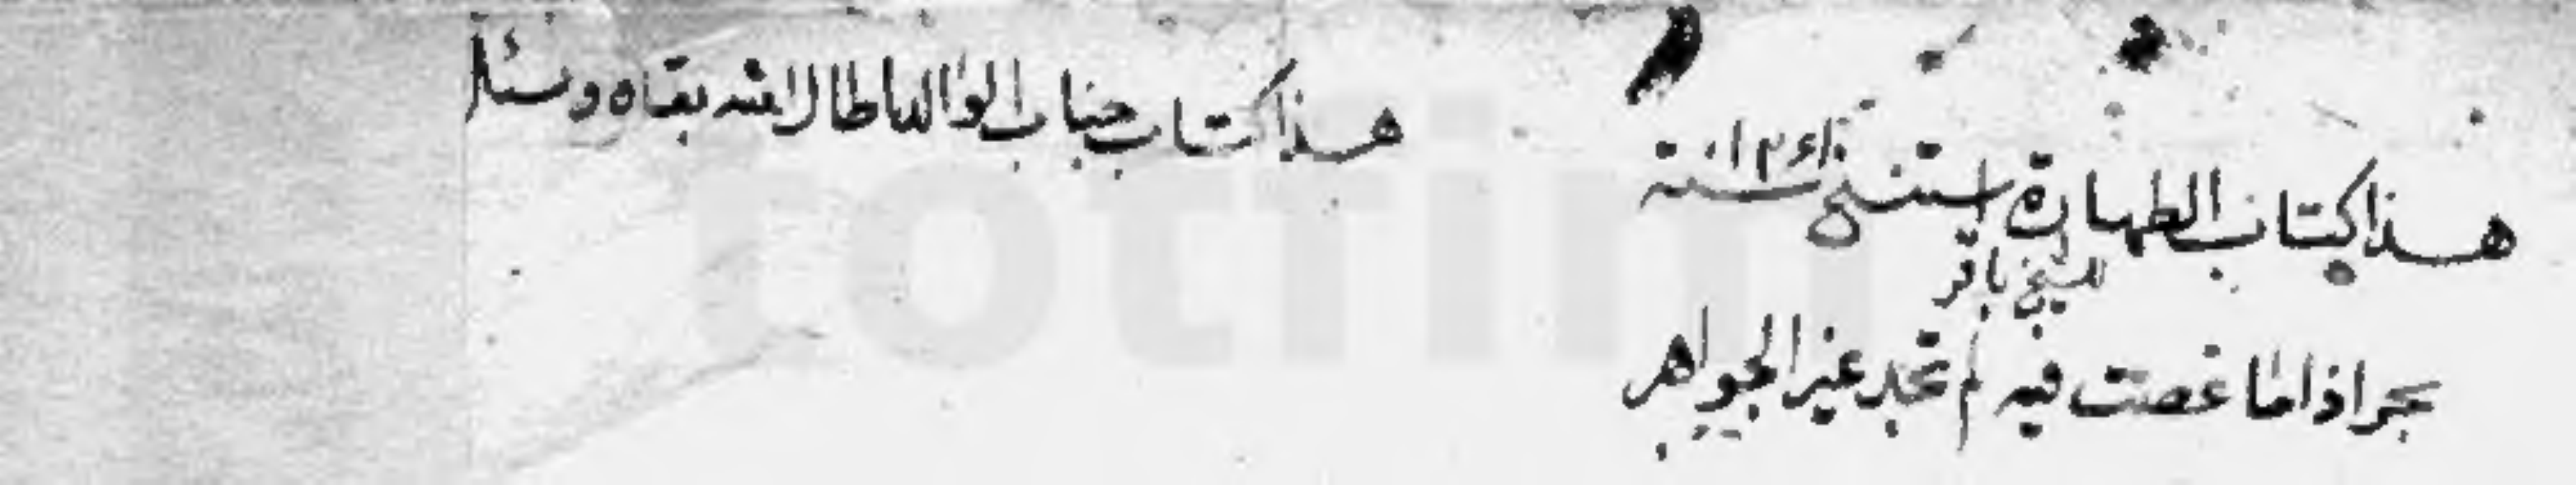 هذا كتاب الطهارة استنسخ سنة
للشيخ باقر
بحر اذا ما غصت فيه لم تجد غير الجواهر
هذا كتاب جناب الوالد اطال الله بقاه